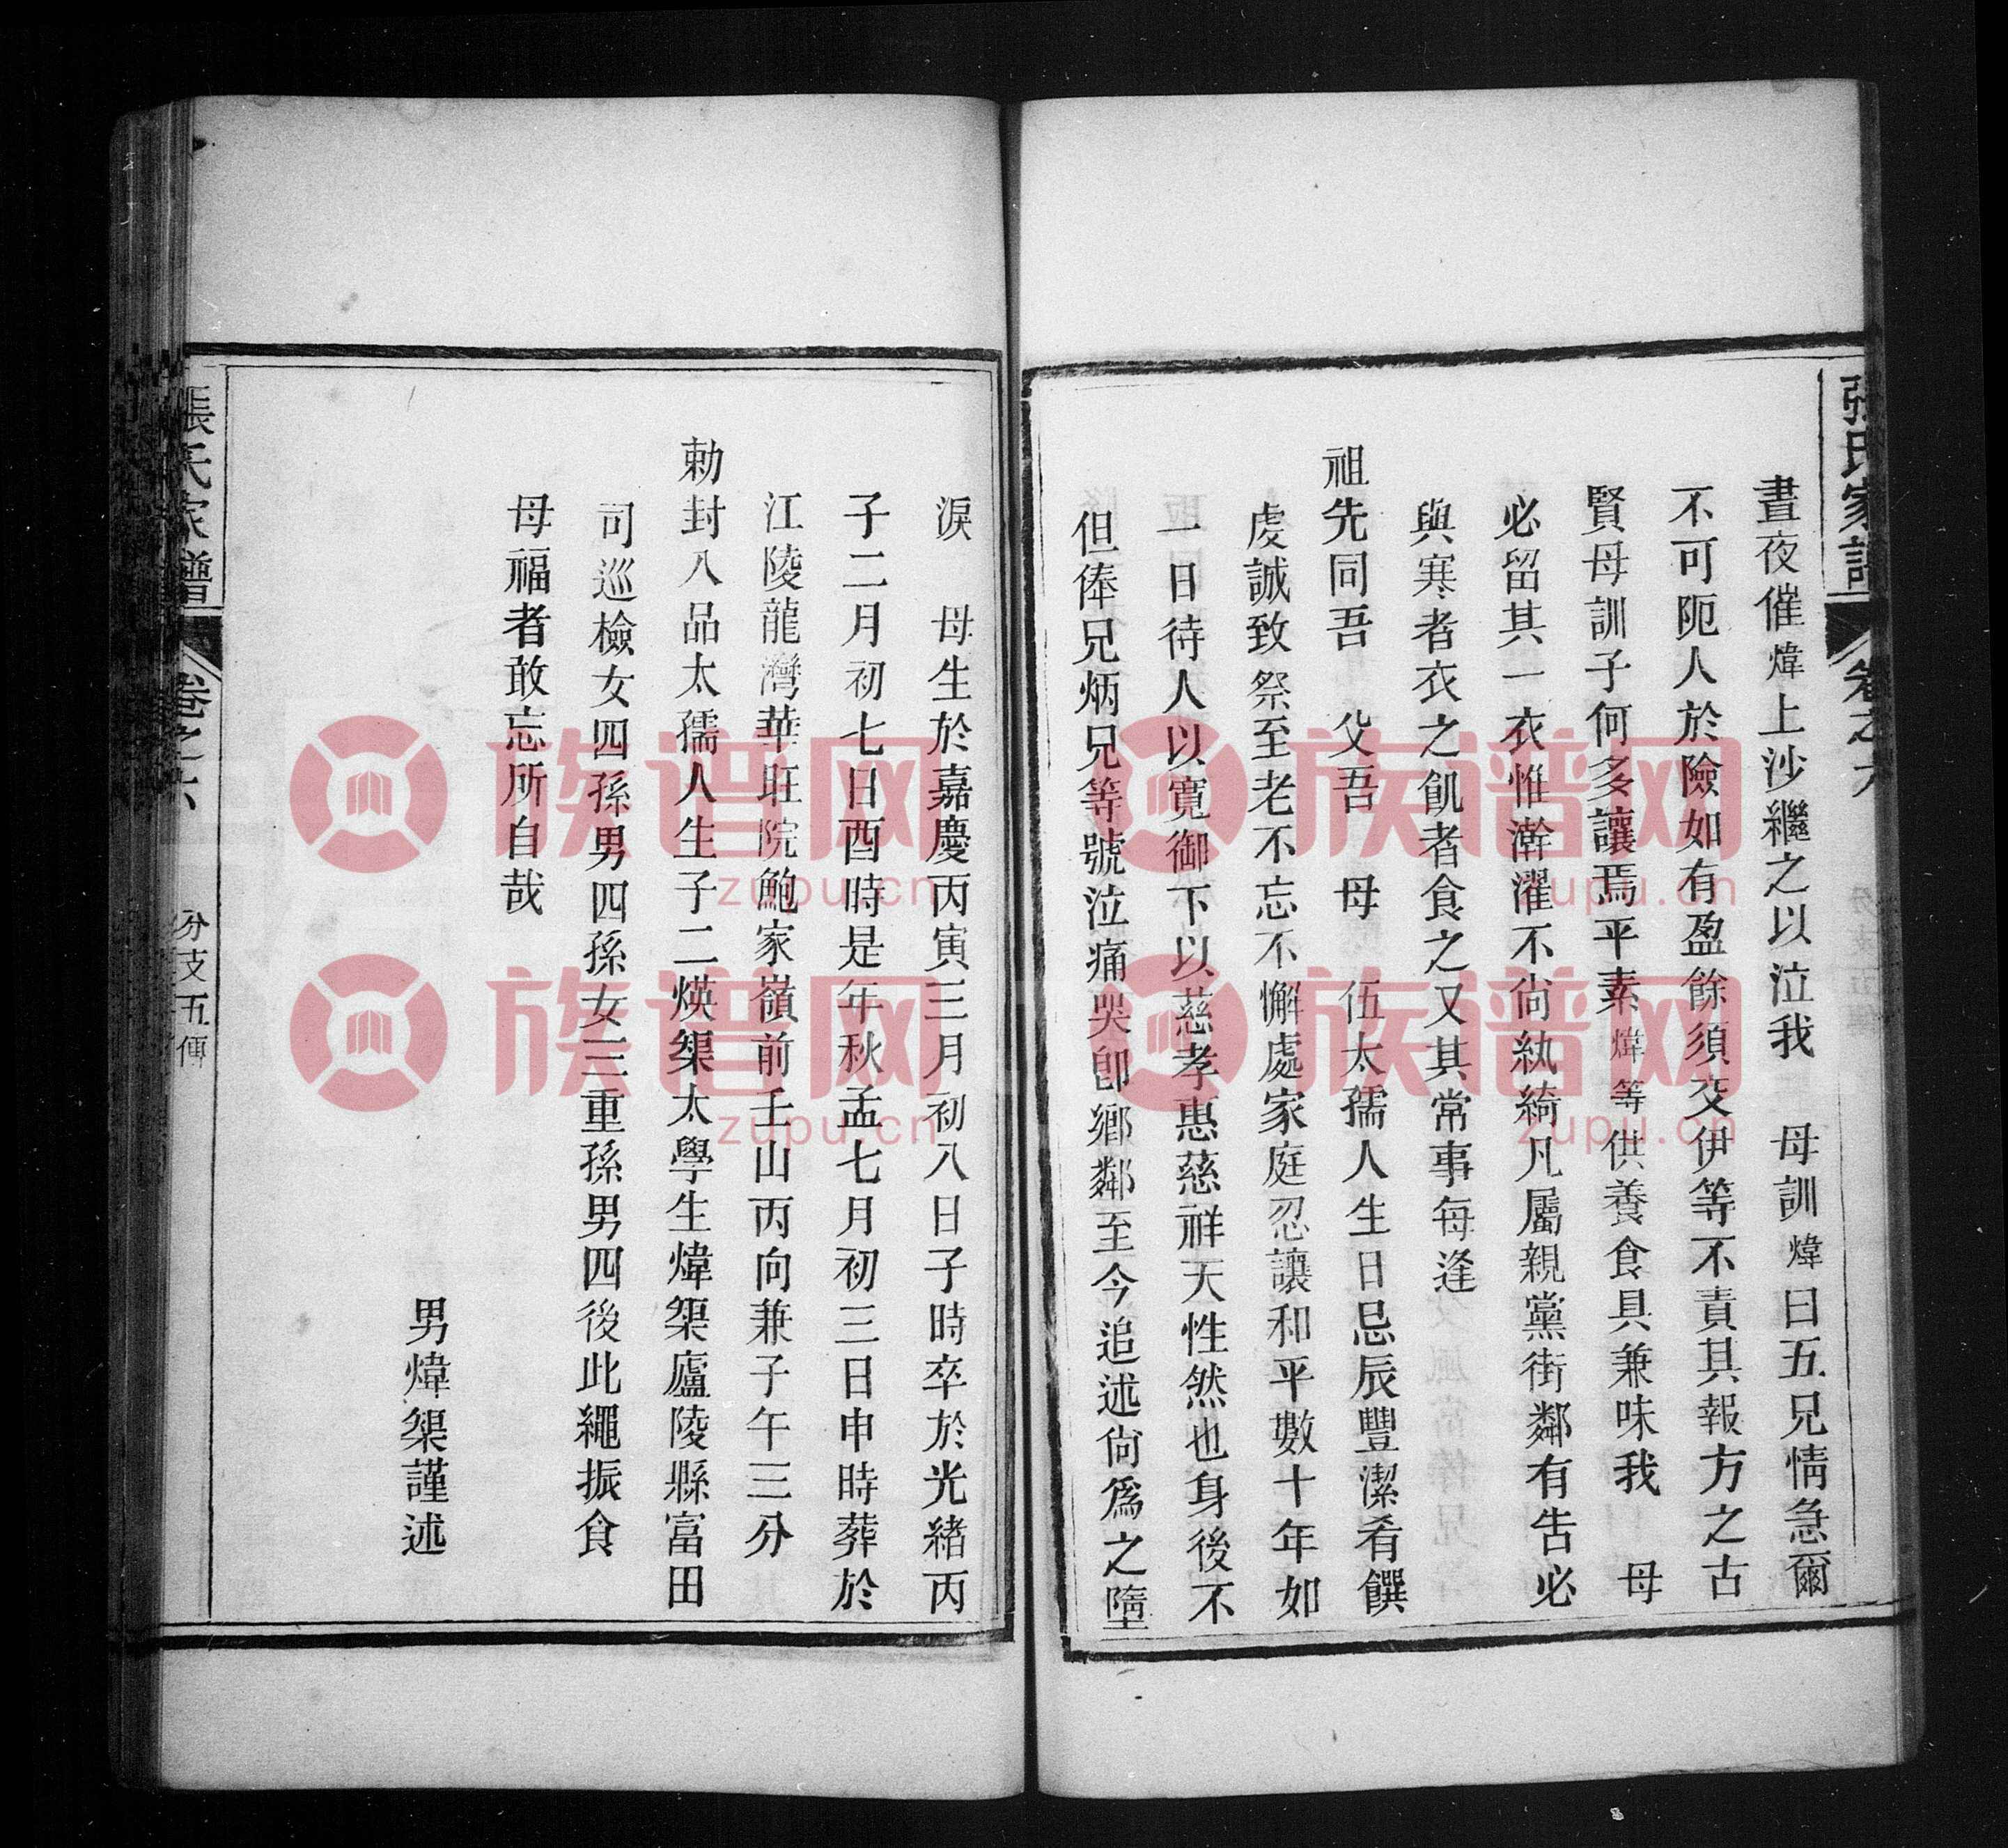 張氏家譜 卷之六
晝夜催煒上沙繼之以泣我 母訓煒曰五兄情急爾
不可阨人於險如有盈餘須交伊等不責其報方之古
賢母訓子何多讓焉平素煒等供養食具兼味我 母
必留其一衣惟澣濯不尙紈綺凡屬親黨街鄰有吿必
與寒者衣之飢者食之又其常事每逢
祖先同吾 父吾 母 伍太孺人生日忌辰豐潔肴饌
虔誠致祭至老不忘不懈處家庭忍讓和平數十年如
一日待人以寬御下以慈孝惠慈祥天性然也身後不
但俸兄炳兄等號泣痛哭卽鄉鄰至今追述尙爲之墮
淚 母生於嘉慶丙寅三月初八日子時卒於光緒丙
子二月初七日酉時是年秋孟七月初三日申時葬於
江陵龍灣華旺院鮑家嶺前壬山丙向兼子午三分
勅封八品太孺人生子二煐榘太學生煒榘廬陵縣富田
司巡檢女四孫男四孫女三重孫男四後此繩振食
母福者敢忘所自哉
男煒榘謹述
張氏家譜 卷之六 分支五傳
族谱网
zupu.cn
族谱网
zupu.cn
族谱网
zupu.cn
族谱网
zupu.cn